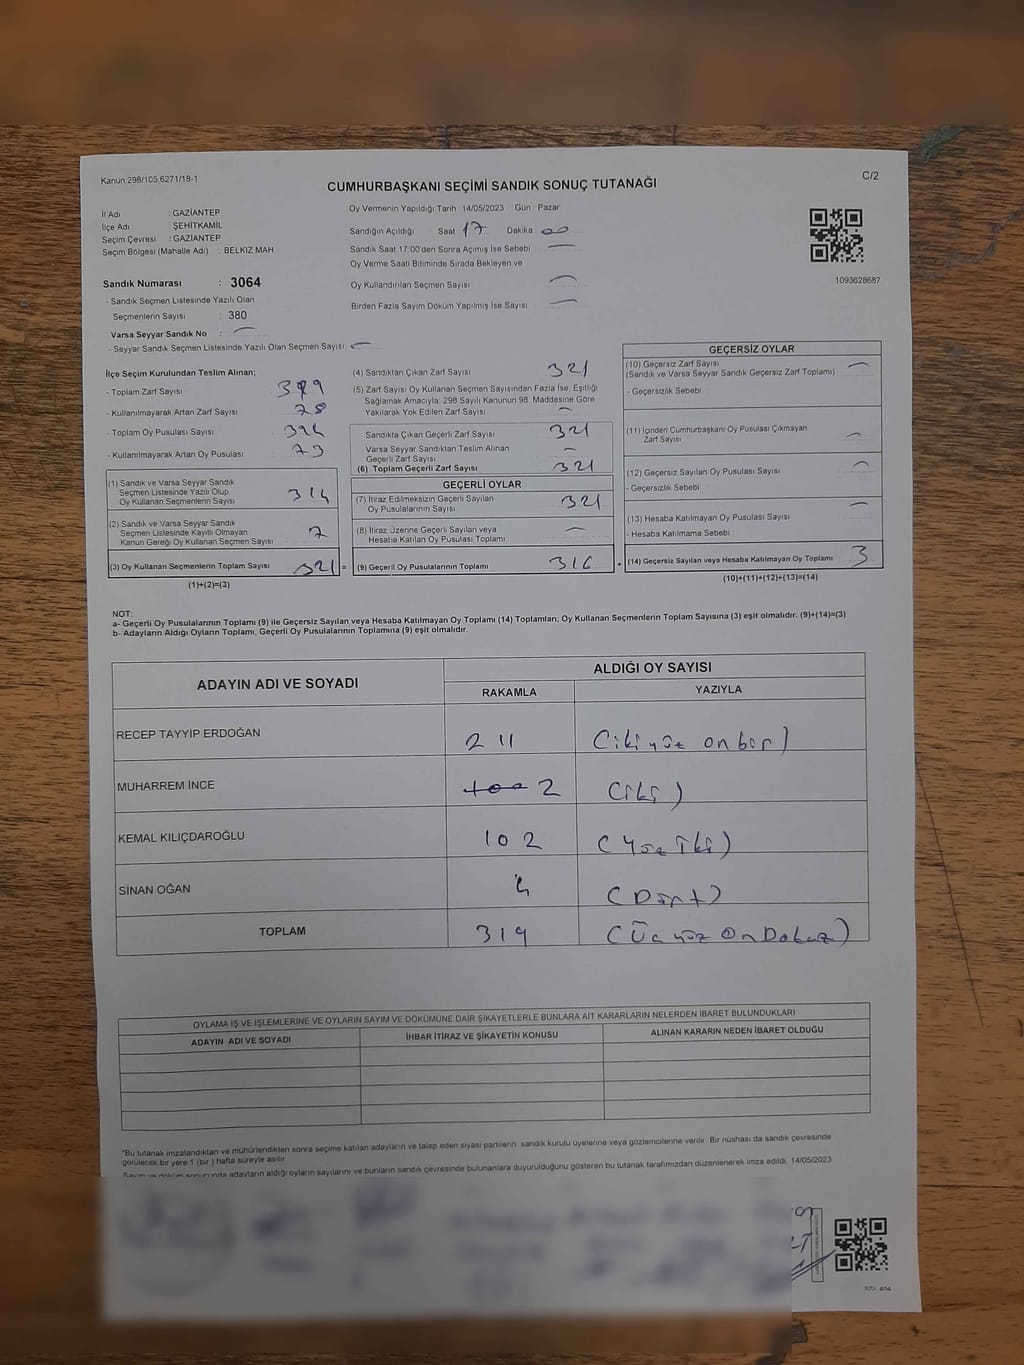 Kanun,298/105,6271/18-1
CUMHURBAŞKANI SEÇİMİ SANDIK SONUÇ TUTANAĞI
C/2
İl Adı : GAZİANTEP
İlçe Adı : ŞEHİTKAMİL
Seçim Çevresi : GAZİANTEP
Seçim Bölgesi (Mahalle Adı) : BELKIZ MAH
Sandık Numarası : 3064
- Sandık Seçmen Listesinde Yazılı Olan
Seçmenlerin Sayısı : 380
Varsa Seyyar Sandık No : —
- Seyyar Sandık Seçmen Listesinde Yazılı Olan Seçmen Sayısı: —
Oy Vermenin Yapıldığı Tarih 14/05/2023 Gün Pazar
Sandığın Açıldığı Saat 17 Dakika 00
Sandık Saat 17:00'den Sonra Açımış İse Sebebi —
Oy Verme Saati Bitiminde Sırada Bekleyen ve
Oy Kullandırılan Seçmen Sayısı —
Birden Fazla Sayım Döküm Yapılmış İse Sayısı —
1093628687
İlçe Seçim Kurulundan Teslim Alınan;
- Toplam Zarf Sayısı
- Kullanılmayarak Artan Zarf Sayısı 78
- Toplam Oy Pusulası Sayısı 394
- Kullanılmayarak Artan Oy Pusulası 73
(1) Sandık ve Varsa Seyyar Sandık
Seçmen Listesinde Yazılı Olup
Oy Kullanan Seçmenlerin Sayısı 314
(2) Sandık ve Varsa Seyyar Sandık
Seçmen Listesinde Kayıtlı Olmayan
Kanun Gereği Oy Kullanan Seçmen Sayısı 7
(3) Oy Kullanan Seçmenlerin Toplam Sayısı 321 =
(1)+(2)=(3)
(4) Sandıktan Çıkan Zarf Sayısı 321
(5) Zarf Sayısı Oy Kullanan Seçmen Sayısından Fazla İse, Eşitliği
Sağlamak Amacıyla, 298 Sayılı Kanunun 98. Maddesine Göre
Yakılarak Yok Edilen Zarf Sayısı —
Sandıkta Çıkan Geçerli Zarf Sayısı 321
Varsa Seyyar Sandıktan Teslim Alınan
Geçerli Zarf Sayısı —
(6) Toplam Geçerli Zarf Sayısı 321
GEÇERLİ OYLAR
(7) İtiraz Edilmeksizin Geçerli Sayılan
Oy Pusulalarının Sayısı 321
(8) İtiraz Üzerine Geçerli Sayılan veya
Hesaba Katılan Oy Pusulası Toplamı —
(9) Geçerli Oy Pusulalarının Toplamı 316
GEÇERSİZ OYLAR
(10) Geçersiz Zarf Sayısı —
(Sandık ve Varsa Seyyar Sandık Geçersiz Zarf Toplamı)
- Geçersizlik Sebebi
(11) İçinden Cumhurbaşkanı Oy Pusulası Çıkmayan
Zarf Sayısı —
(12) Geçersiz Sayılan Oy Pusulası Sayısı —
- Geçersizlik Sebebi
(13) Hesaba Katılmayan Oy Pusulası Sayısı —
- Hesaba Katılmama Sebebi
(14) Geçersiz Sayılan veya Hesaba Katılmayan Oy Toplamı 3
(10)+(11)+(12)+(13)=(14)
NOT:
a- Geçerli Oy Pusulalarının Toplamı (9) ile Geçersiz Sayılan veya Hesaba Katılmayan Oy Toplamı (14) Toplamları, Oy Kullanan Seçmenlerin Toplam Sayısına (3) eşit olmalıdır. (9)+(14)=(3)
b- Adayların Aldığı Oyların Toplamı, Geçerli Oy Pusulalarının Toplamına (9) eşit olmalıdır.
ADAYIN ADI VE SOYADI
ALDIĞI OY SAYISI
RAKAMLA YAZIYLA
RECEP TAYYİP ERDOĞAN 211 (ikiyüz onbir)
MUHARREM İNCE 2 (iki)
KEMAL KILIÇDAROĞLU 102 (Yüz İki)
SİNAN OĞAN 4 (Dört)
TOPLAM 319 (Üçyüz OnDokuz)
OYLAMA İŞ VE İŞLEMLERİNE VE OYLARIN SAYIM VE DÖKÜMÜNE DAİR ŞİKAYETLERLE BUNLARA AİT KARARLARIN NELERDEN İBARET BULUNDUKLARI
ADAYIN ADI VE SOYADI İHBAR İTİRAZ VE ŞİKAYETİN KONUSU ALINAN KARARIN NEDEN İBARET OLDUĞU
*Bu tutanak imzalandıktan ve mühürlendikten sonra seçime katılan adayların ve talep eden siyasi partilerin sandık kurulu üyelerine veya gözlemcilerine verilir. Bir nüshası da sandık çevresinde
görülecek bir yere 1 (bir) hafta süreyle asılır.
Sayım ve döküm sonucunda adayların aldığı oyların sayılarını ve bunların sandık çevresinde bulunanlara duyurulduğunu gösteren bu tutanak tarafımızdan düzenlenerek imza edildi. 14/05/2023